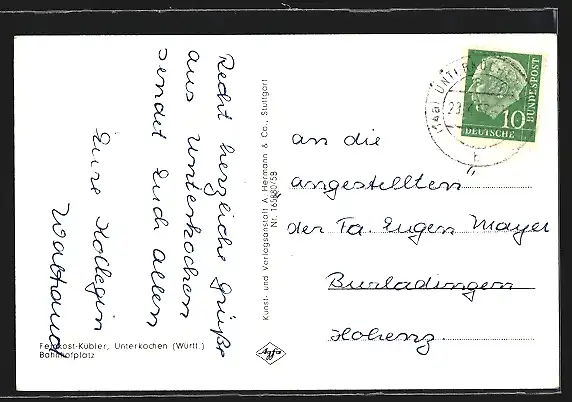 Recht herzliche Grüße
aus Unterkochen
sendet Euch allen
Eure Kollegin
Waltraud
Feinkost-Kübler, Unterkochen (Württ.)
Bahnhofplatz
Kunst- und Verlagsanstalt A. Hermann & Co., Stuttgart
effgy
an die
angestellten
der Fa. Eugen Mayer
Burladingen
Hohenz.
10
DEUTSCHE
BUNDESPOST